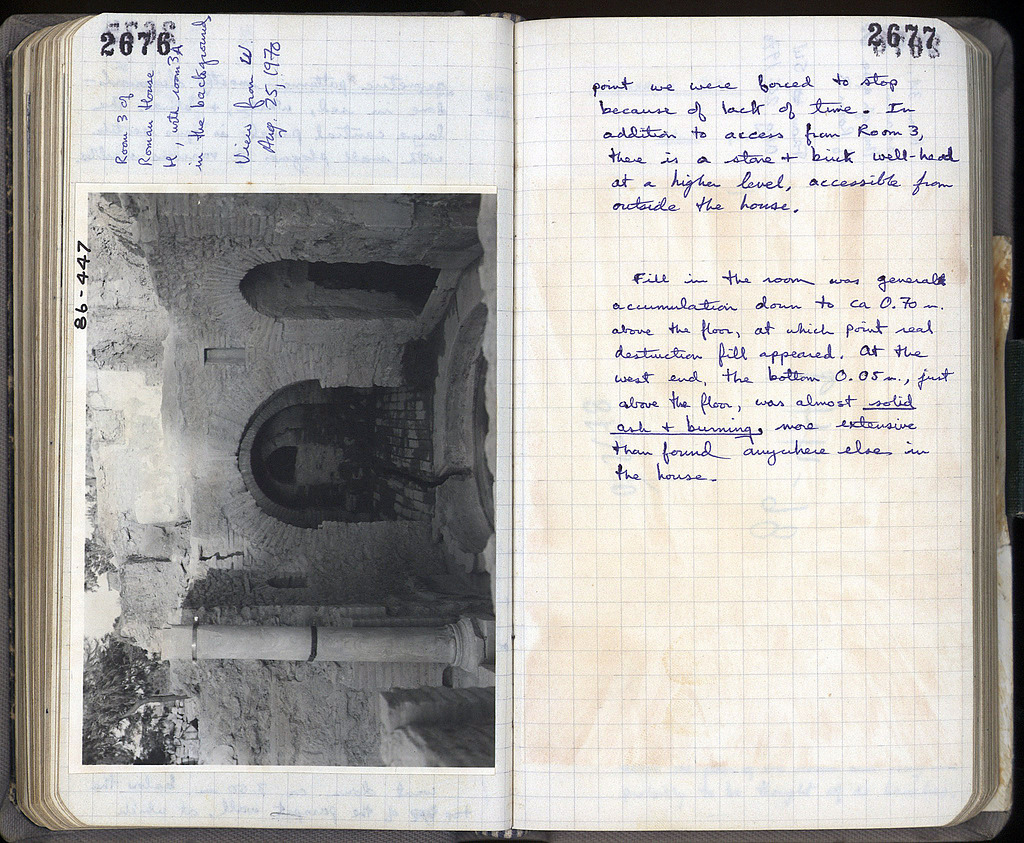 2676
Room 3 of
Roman House
H, with room 3A
in the background
View from W.
Aug. 25, 1970
86-447
2677
point we were forced to stop
because of lack of time. In
addition to access from Room 3,
there is a stone + brick well-head
at a higher level, accessible from
outside the house.
Fill in the room was general
accumulation down to ca 0.70 m.
above the floor, at which point real
destruction fill appeared. At the
west end, the bottom 0.05 m., just
above the floor, was almost solid
ash + burning, more extensive
than found anywhere else in
the house.